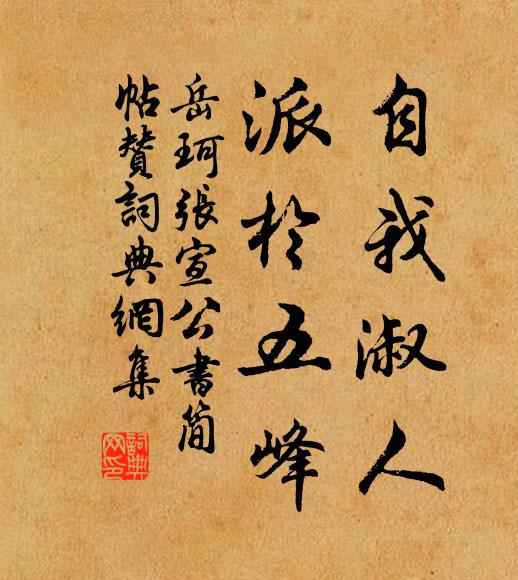 自我淑人
派於五峰
岳珂張宣公書簡
帖贊詞典網集
詞典网印